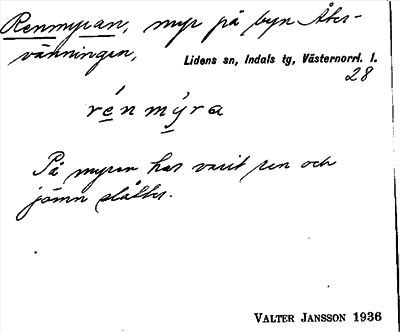 Renmyran, myr på byn Åter-
vänningen, Lidens sn, Indals tg, Västernorrl. l.
28
rénmýra
På myren har varit ren och
jämn slåtter.
VALTER JANSSON 1936